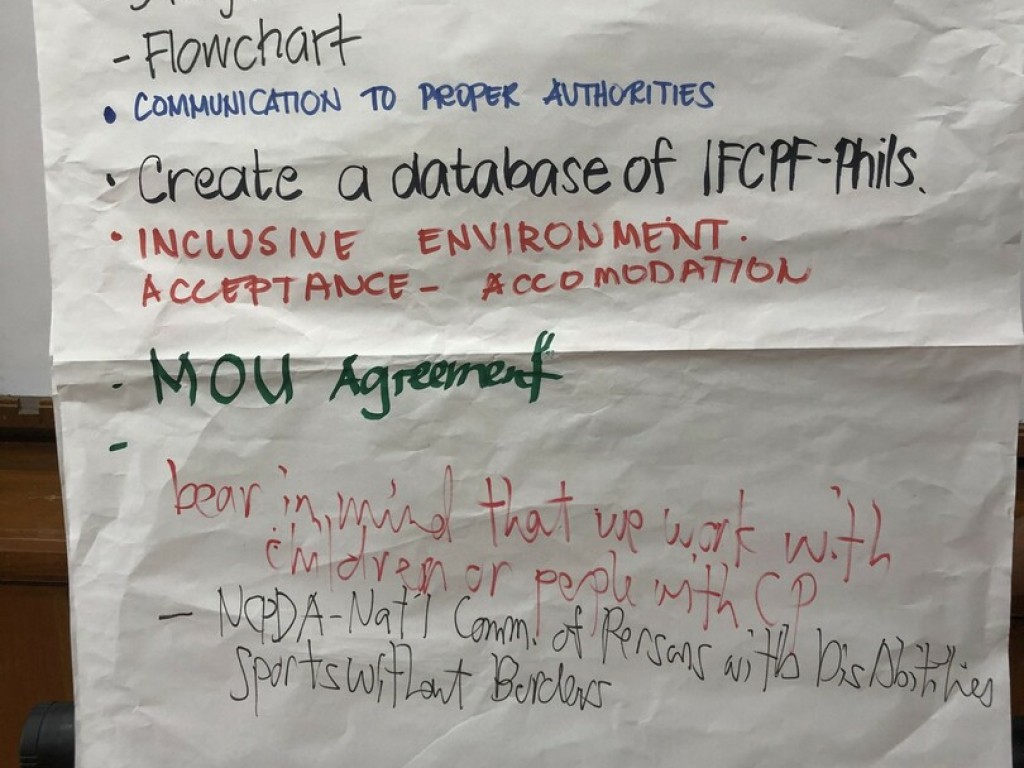 - Flowchart
• COMMUNICATION TO PROPER AUTHORITIES
• Create a database of IFCPF-Phils.
• INCLUSIVE ENVIRONMENT.
ACCEPTANCE - ACCOMODATION
- MOU Agreement
-
bear in mind that we work with
children or people with CP
- NCPDA-Nat'l Comm. of Persons with DisAbitities
Sports Without Borders